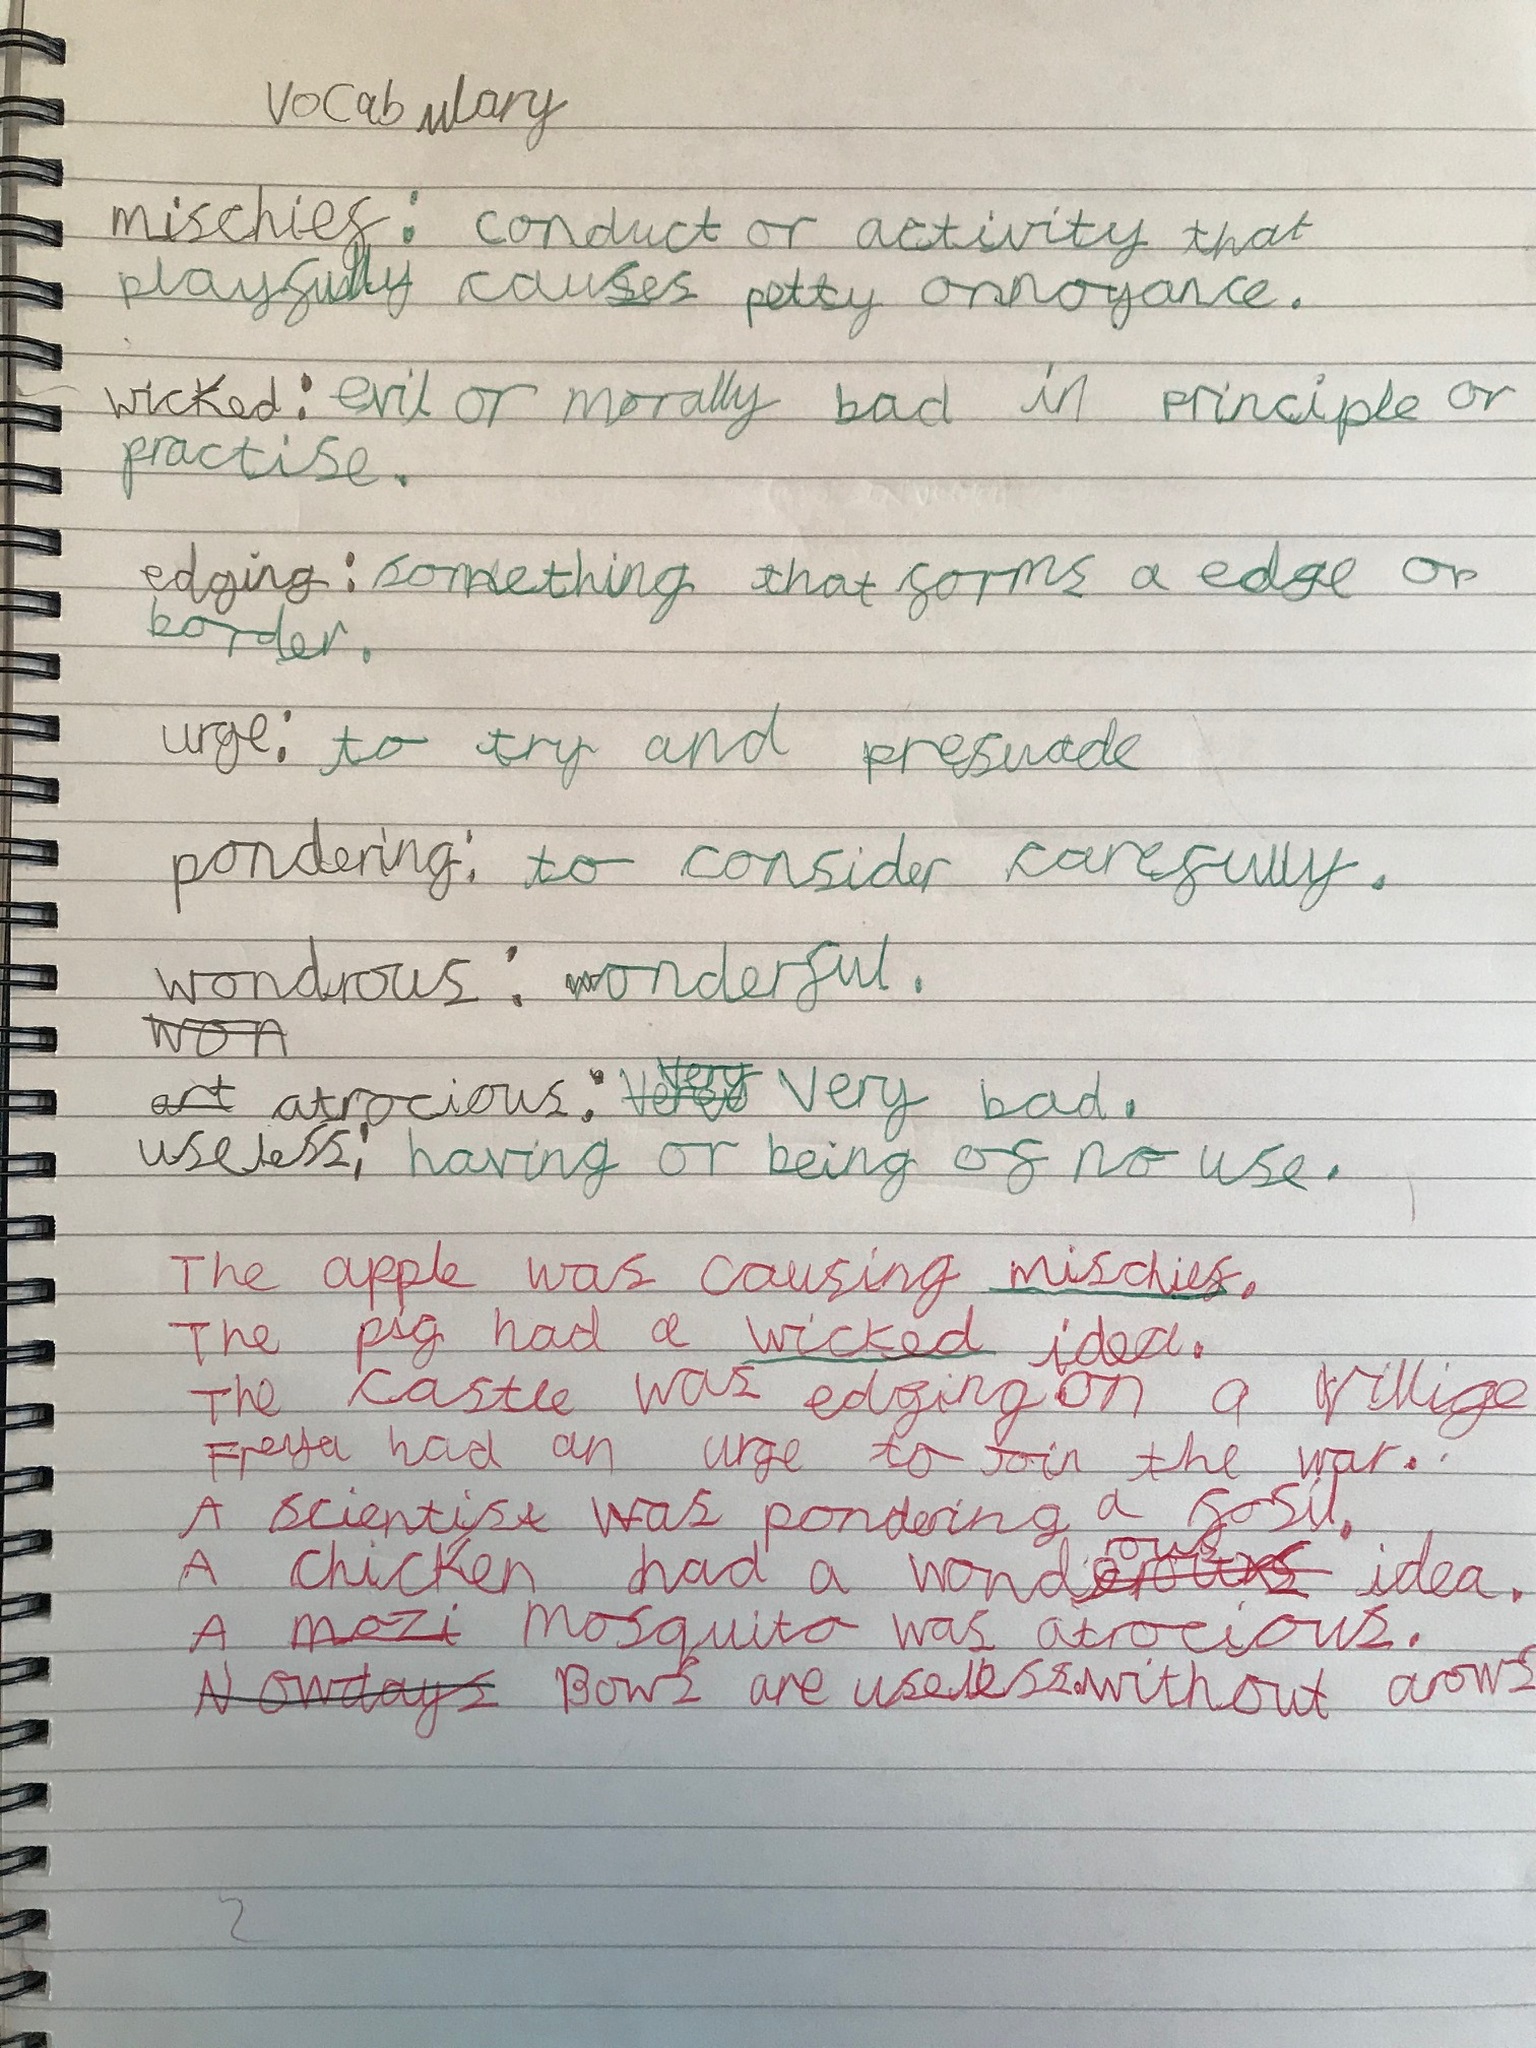 Vocabulary
mischief: conduct or activity that
playfully causes petty annoyance.
wicked: evil or morally bad in principle or
practise.
edging: something that forms a edge or
border.
urge: to try and presuade
pondering: to consider carefully.
wondrous: wonderful.
won
art atrocious: Very Very bad.
useless: having or being of no use.
The apple was causing mischief.
The pig had a wicked idea.
The castle was edging on a villige
Freya had an urge to Join the war.
A scientist was pondering a fosil.
A chicken had a wondrous idea.
A mozi Mosquito was atrocious.
Nowdays Bows are useless without arows